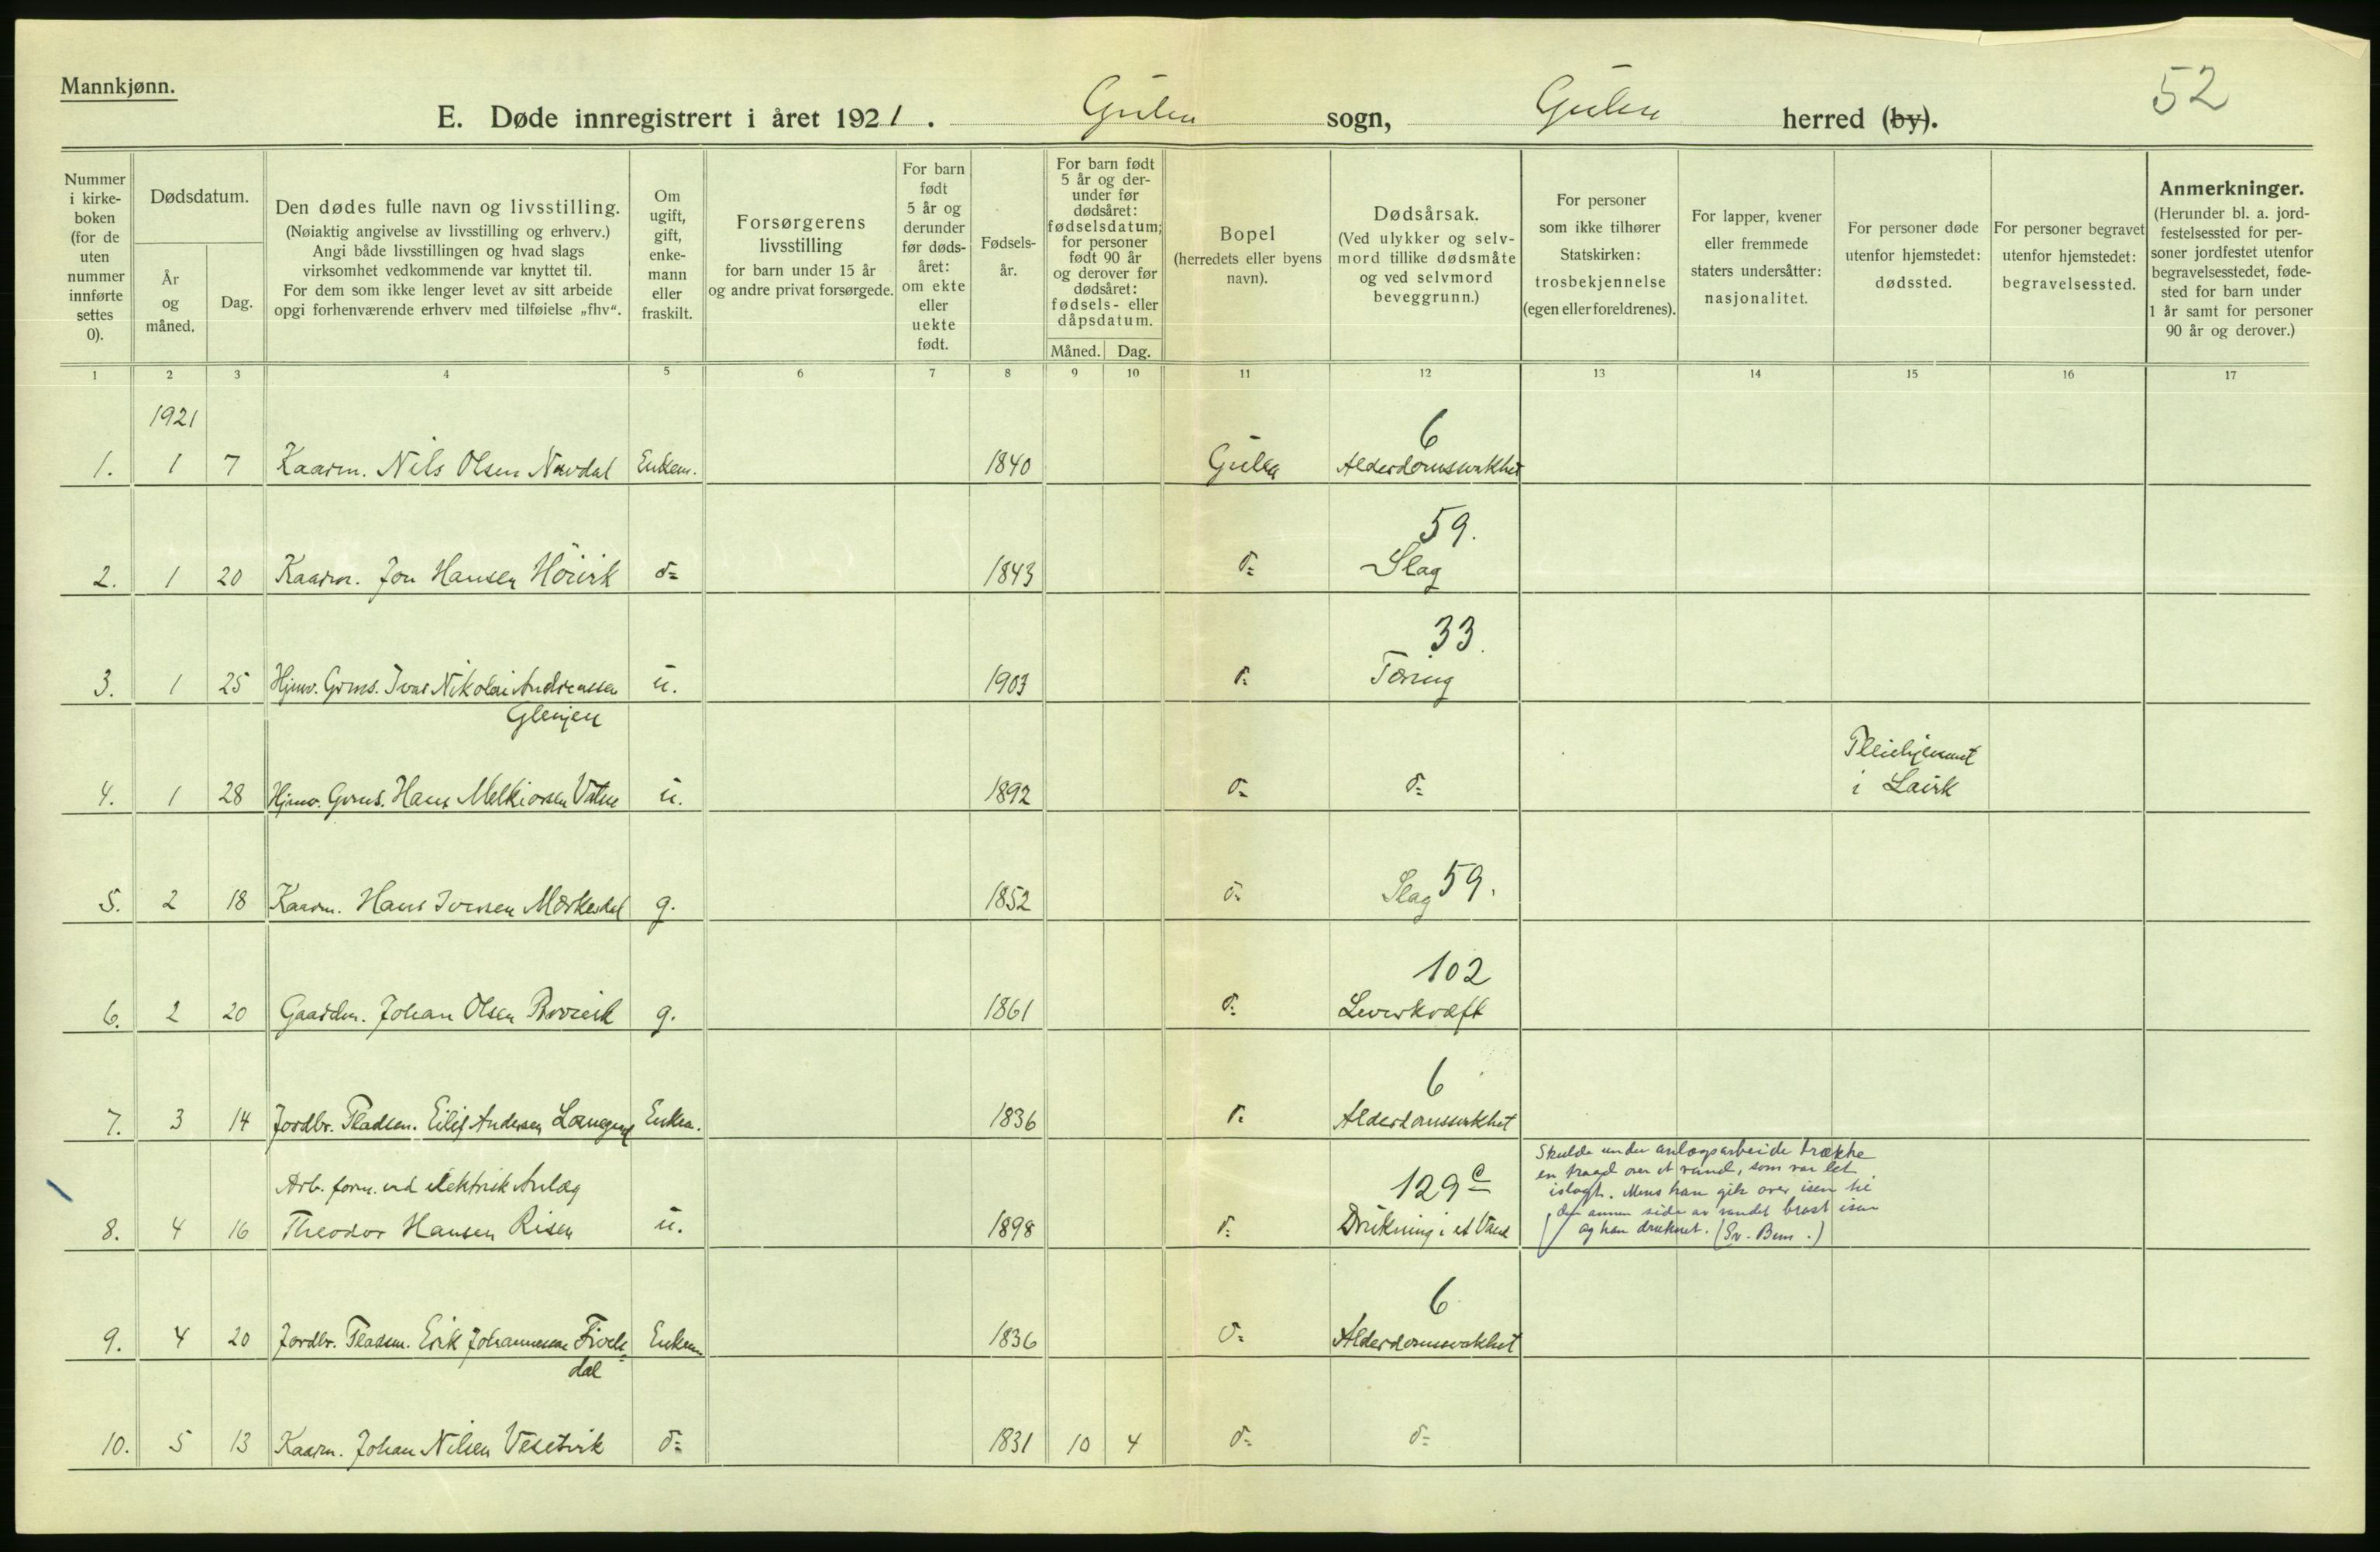 Mannkjønn.
52
E. Døde innregistrert i året 1921. Gulen sogn, Gulen herred (by).
Nummer i kirkeboken (for de uten nummer innførte settes 0).
Dødsdatum.
År og måned.
Dag.
Den dødes fulle navn og livsstilling.
(Nøiaktig angivelse av livsstilling og erhverv.)
Angi både livsstillingen og hvad slags
virksomhet vedkommende var knyttet til.
For dem som ikke lenger levet av sitt arbeide
opgi forhenværende erhverv med tilføielse „fhv“.
Om ugift, gift, enkemann eller fraskilt.
Forsørgerens livsstilling
for barn under 15 år
og andre privat forsørgede.
For barn født 5 år og derunder før dødsåret: om ekte eller uekte født.
Fødselsår.
For barn født 5 år og derunder før dødsåret: fødselsdatum; for personer født 90 år og derover før dødsåret: fødsels- eller dåpsdatum.
Måned. Dag.
Bopel
(herredets eller byens navn).
Dødsårsak.
(Ved ulykker og selvmord tillike dødsmåte og ved selvmord beveggrunn.)
For personer som ikke tilhører Statskirken: trosbekjennelse (egen eller foreldrenes).
For lapper, kvener eller fremmede staters undersåtter: nasjonalitet.
For personer døde utenfor hjemstedet: dødssted.
For personer begravet utenfor hjemstedet: begravelsessted.
Anmerkninger.
(Herunder bl. a. jordfestelsessted for personer jordfestet utenfor begravelsesstedet, fødested for barn under 1 år samt for personer 90 år og derover.)
1 2 3 4 5 6 7 8 9 10 11 12 13 14 15 16 17
1921
6
1. 1 7 Kaarm. Nils Olsen Nordal Enkem. 1840 Gulen Alderdomssvakhet
59.
2. 1 20 Kaarm. Jon Hansen Höivik d= 1843 d= Slag
33.
3. 1 25 Hjmv. Grms. Ivar Nikolai Andreassen u. 1903 d= Tæring
Glenjen
Pleiehjemmet
4. 1 28 Hjmv. Grms. Hans Melkiorsen Vatne u. 1892 d= d= i Lavik
5. 2 18 Kaarm. Hans Iversen Mærkesdal g. 1852 d= Slag 59.
102
6. 2 20 Gaardm. Johan Olsen g. 1861 d= Leverkræft
6
7. 3 14 Jordbr. Pladsm. Eilif Andersen Enkem. 1836 d= Alderdomssvakhet
Skulde under anlægsarbeide trække
en traad over et vand, som var let
islagt. Mens han gik over isen til
den annen side av vandet brast isen
og han druknet. (Sv. Bem.)
Arb. form. ved elektrisk Anlæg 129 c
8. 4 16 Theodor Hansen Risen u. 1898 d= Drukning i et Vand
6
9. 4 20 Jordbr. Pladsm. Erik Johannessen Fivels- Enkem. 1836 d= Alderdomssvakhet
dal
10. 5 13 Kaarm. Johan Nilsen Vesetvik d= 1831 10 4 d= d=